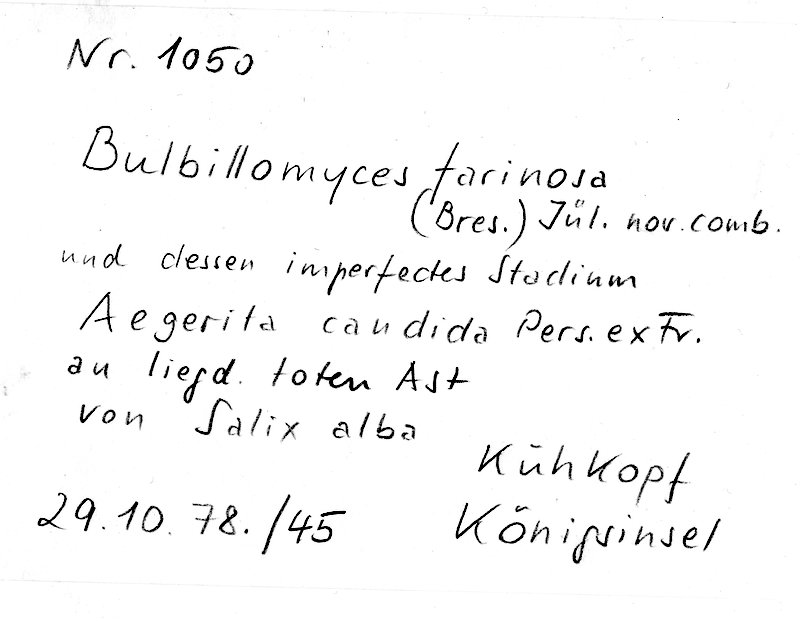 Nr. 1050
Bulbillomyces farinosa
(Bres.) Jül. nov. comb.
und dessen imperfectes Stadium
Aegerita candida Pers. ex Fr.
an liegd. toten Ast
von Salix alba
Kühkopf
29.10.78./45 Königsinsel